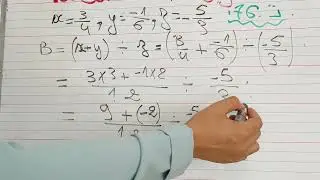 x=3/4, y=-1/6, z=-5/3
B = (x+y) ÷ z = (3/4 + -1/6) ÷ (-5/3)
= 3×3+-1×2/12 ÷ -5/3
= 9+(-2)/12 ÷ -5